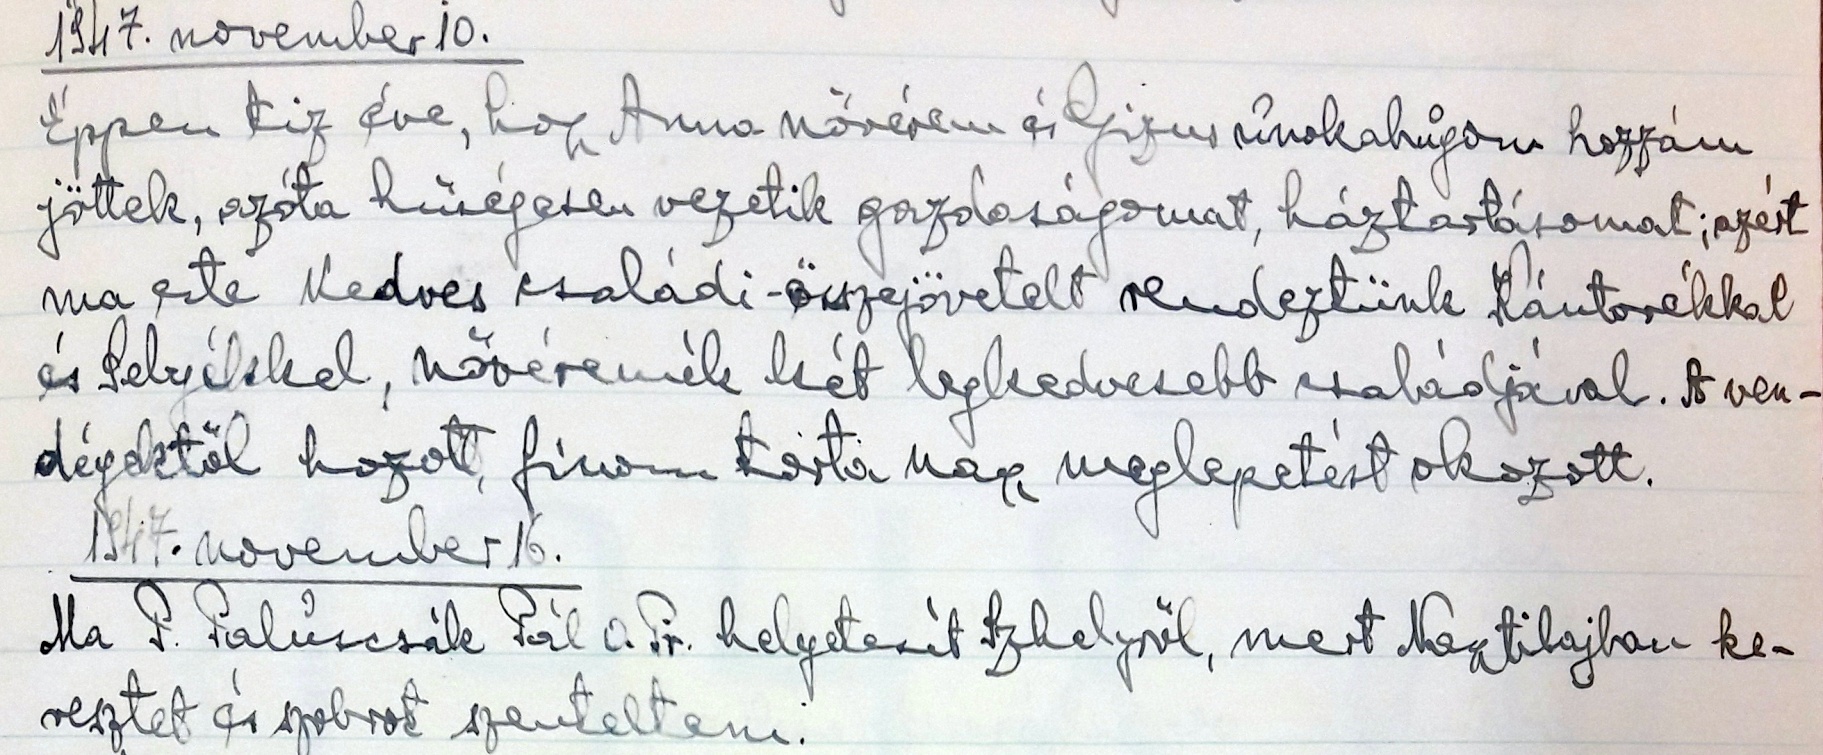 1947. november 10.
Éppen tiz éve, hogy Anna nővérem és Gizus unokahúgom hozzám
jöttek, azóta hűségesen vezetik gazdaságomat, háztartásomat; azért
ma este kedves családi-összejövetelt rendeztünk Kántorékkal
és nővéremék két legkedvesebb családjával. A ven-
dégektől hozott, finom torta nagy meglepetést okozott.
1947. november 16.
Ma P. Palúscsák Pál O. Pr. helyetesít Szhelyről, mert Nagytilajban ke-
resztet és szobrot szenteltem.